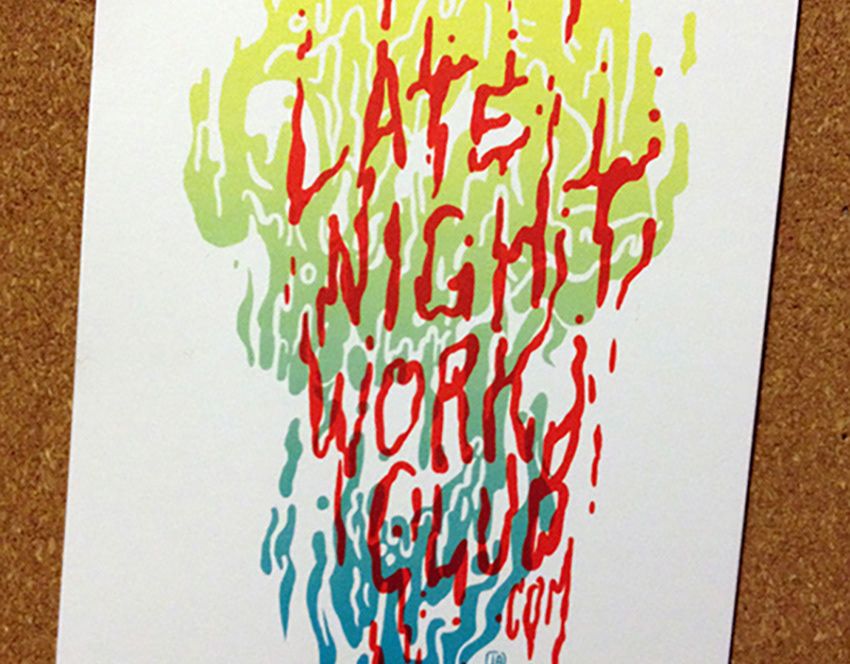 LATE
NIGHT
WORK
CLUB
.COM